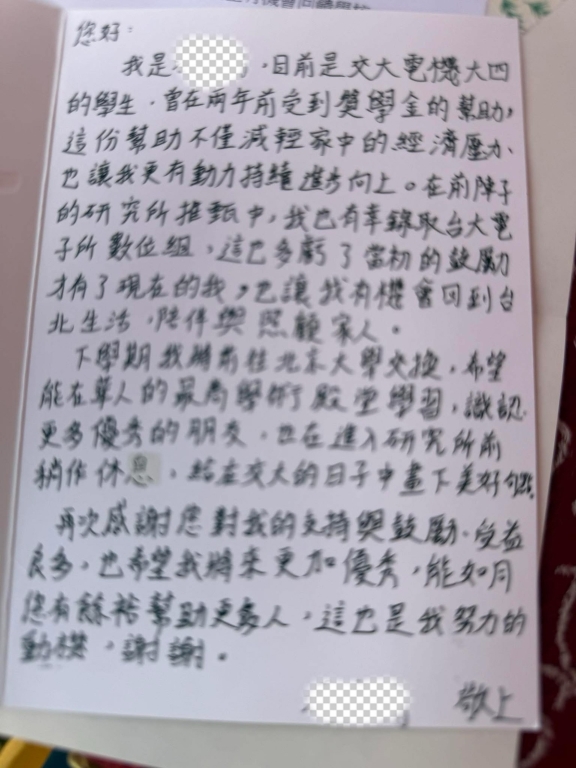 您好：
我是，目前是交大電機大四
的學生，曾在兩年前受到獎學金的幫助，
這份幫助不僅減輕家中的經濟壓力、
也讓我更有動力持續進步向上。在前陣子
的研究所推甄中，我也有幸錄取台大電
子所數位組，這也多虧了當初的鼓勵
才有了現在的我，也讓我有機會回到台
北生活，陪伴與照顧家人。
下學期我將前往北京大學交換，希望
能在華人的最高學術殿堂學習，識認
更多優秀的朋友，也在進入研究所前
稍作休息，給在交大的日子中畫下美好句點。
再次感謝您對我的支持與鼓勵、受益
良多，也希望我將來更加優秀，能如同
您有餘裕幫助更多人，這也是我努力的
動機，謝謝。
敬上